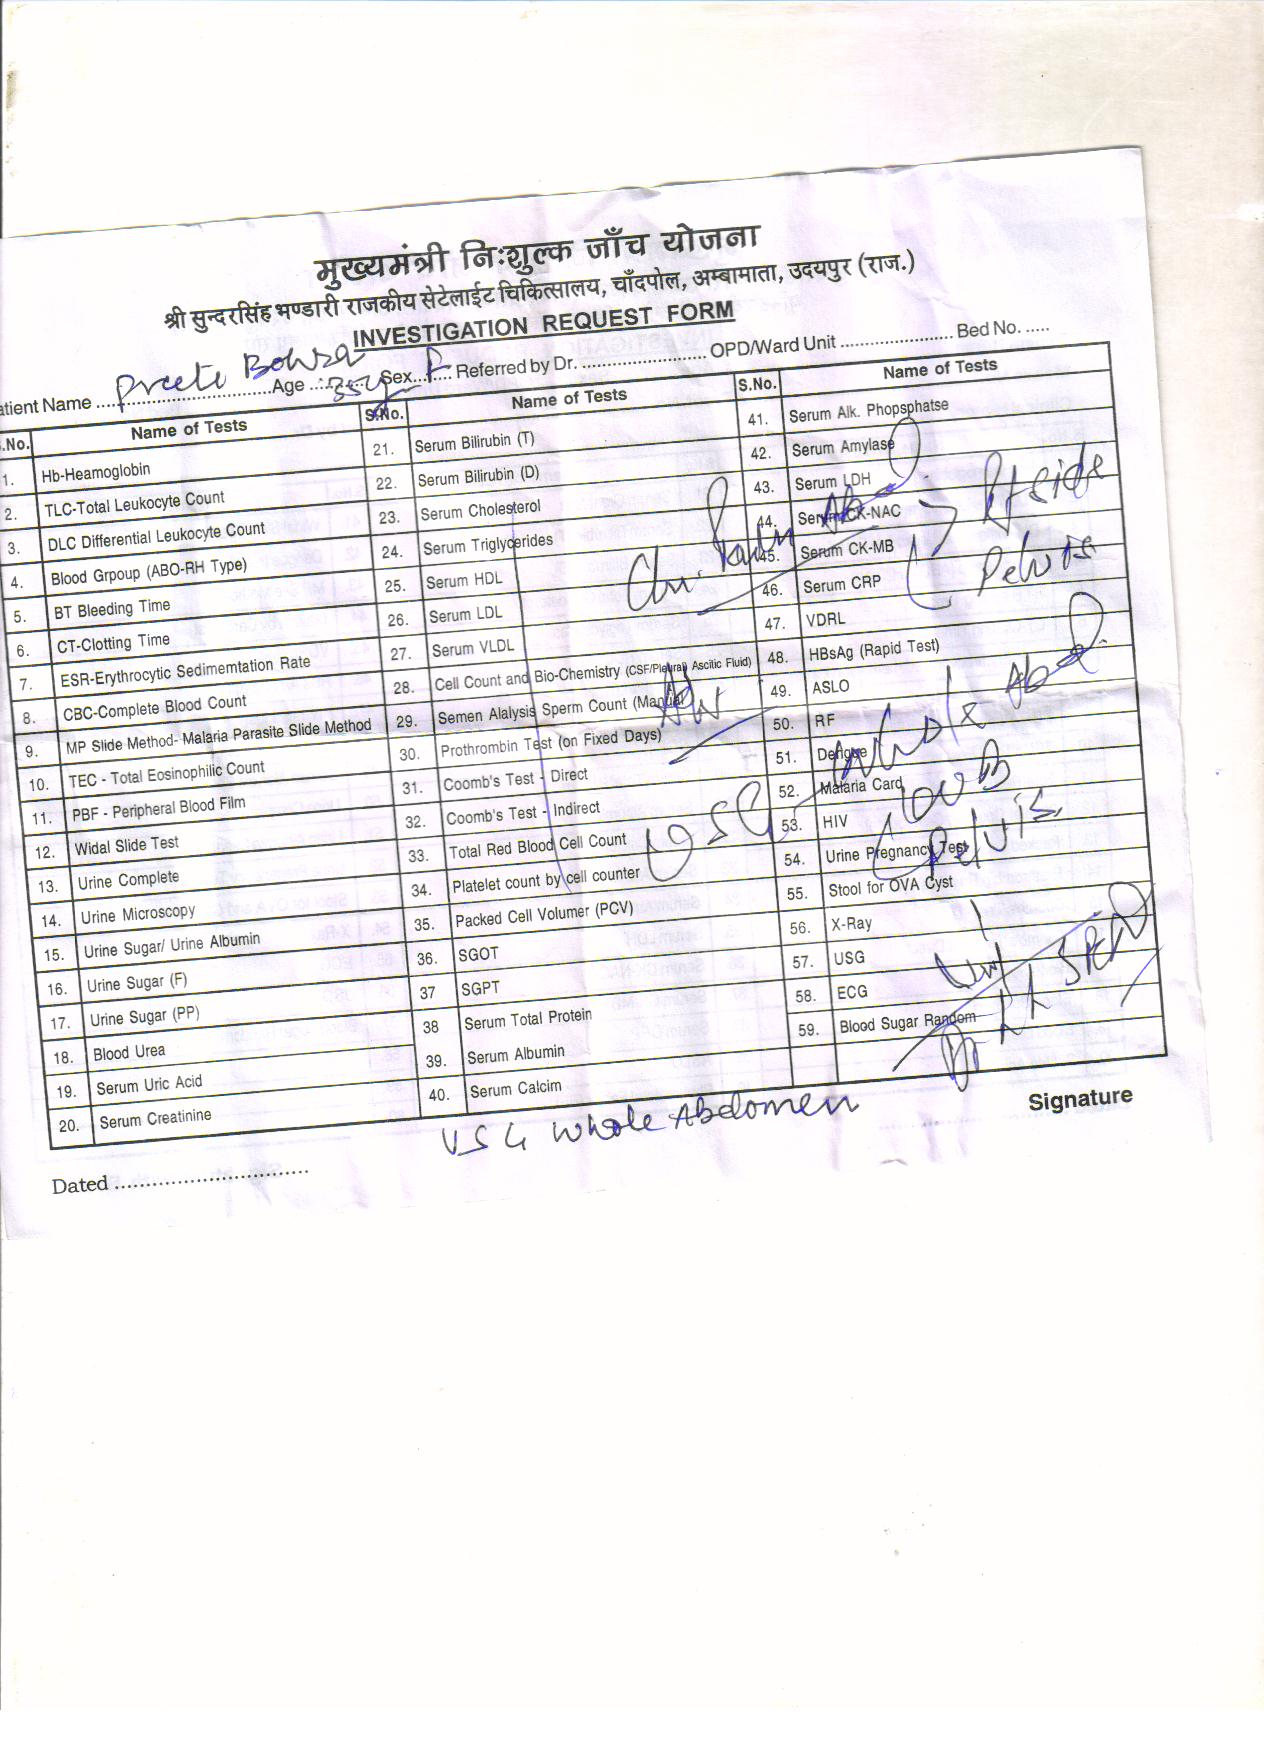 मुख्यमंत्री निःशुल्क जाँच योजना
श्री सुन्दरसिंह भण्डारी राजकीय सेटेलाईट चिकित्सालय, चाँदपोल, अम्बामाता, उदयपुर (राज.)
INVESTIGATION REQUEST FORM
atient Name Preeti Bohra Age 35y Sex F Referred by Dr. OPD/Ward Unit Bed No.
.No. Name of Tests
1. Hb-Heamoglobin
2. TLC-Total Leukocyte Count
3. DLC Differential Leukocyte Count
4. Blood Grpoup (ABO-RH Type)
5. BT Bleeding Time
6. CT-Clotting Time
7. ESR-Erythrocytic Sedimemtation Rate
8. CBC-Complete Blood Count
9. MP Slide Method- Malaria Parasite Slide Method
10. TEC - Total Eosinophilic Count
11. PBF - Peripheral Blood Film
12. Widal Slide Test
13. Urine Complete
14. Urine Microscopy
15. Urine Sugar/ Urine Albumin
16. Urine Sugar (F)
17. Urine Sugar (PP)
18. Blood Urea
19. Serum Uric Acid
20. Serum Creatinine
S.No. Name of Tests
21. Serum Bilirubin (T)
22. Serum Bilirubin (D)
23. Serum Cholesterol
24. Serum Triglycerides
25. Serum HDL
26. Serum LDL
27. Serum VLDL
28. Cell Count and Bio-Chemistry (CSF/Pleural) Ascitic Fluid)
29. Semen Alalysis Sperm Count (Manual
30. Prothrombin Test (on Fixed Days)
31. Coomb's Test - Direct
32. Coomb's Test - Indirect
33. Total Red Blood Cell Count
34. Platelet count by cell counter
35. Packed Cell Volumer (PCV)
36. SGOT
37 SGPT
38 Serum Total Protein
39. Serum Albumin
40. Serum Calcim
S.No. Name of Tests
41. Serum Alk. Phopsphatse
42. Serum Amylase
43. Serum LDH
44. Serum CK-NAC
45. Serum CK-MB
46. Serum CRP
47. VDRL
48. HBsAg (Rapid Test)
49. ASLO
50. RF
51. Dengue
52. Malaria Card
53. HIV
54. Urine Pregnancy Test
55. Stool for OVA Cyst
56. X-Ray
57. USG
58. ECG
59. Blood Sugar Random
Pelvis
USG
Abd
Pelvis
USG Whole Abdomen
Signature
Dated